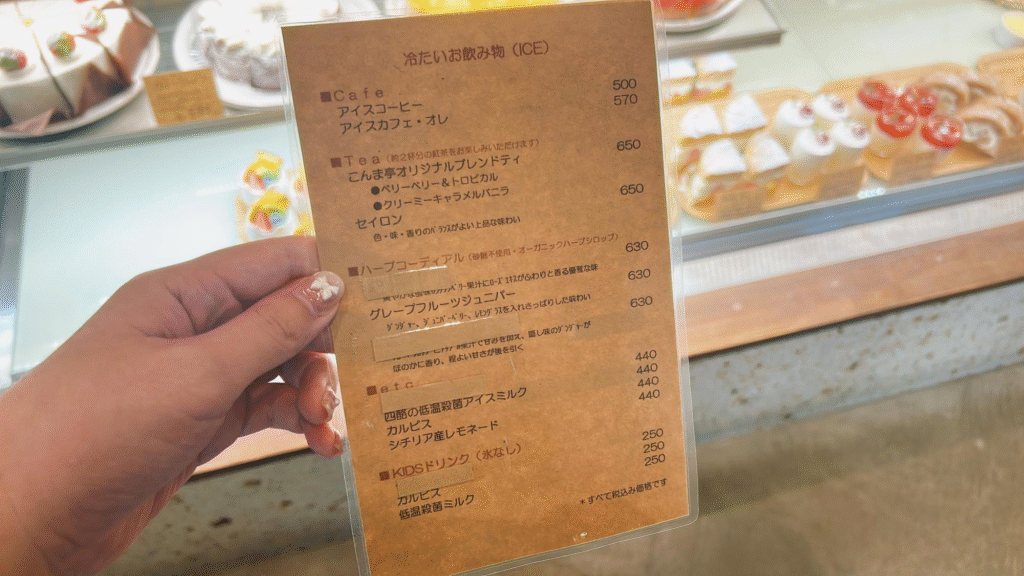 冷たいお飲み物（ICE）
■Cafe
アイスコーヒー 500
アイスカフェ・オレ 570
■Tea（約2杯分の紅茶をお楽しみいただけます）
こんま亭オリジナルブレンドティ 650
●ベリーベリー＆トロピカル
●クリーミーキャラメルバニラ
セイロン 650
色・味・香りのﾊﾞﾗﾝｽがよい上品な味わい
■ハーブコーディアル（砂糖不使用・オーガニックハーブシロップ）
630
グレープフルーツジュニパー 630
ｼﾞﾝｼﾞｬｰ、ｼﾞｭﾆﾊﾟｰﾍﾞﾘｰ、ﾚﾓﾝｸﾞﾗｽを入れさっぱりした味わい
630
ほのかに香り、程よい甘さが後を引く
■etc
440
四葩の低温殺菌アイスミルク 440
カルピス 440
シチリア産レモネード 440
■KIDSドリンク（氷なし）
250
カルピス 250
低温殺菌ミルク 250
＊すべて税込み価格です